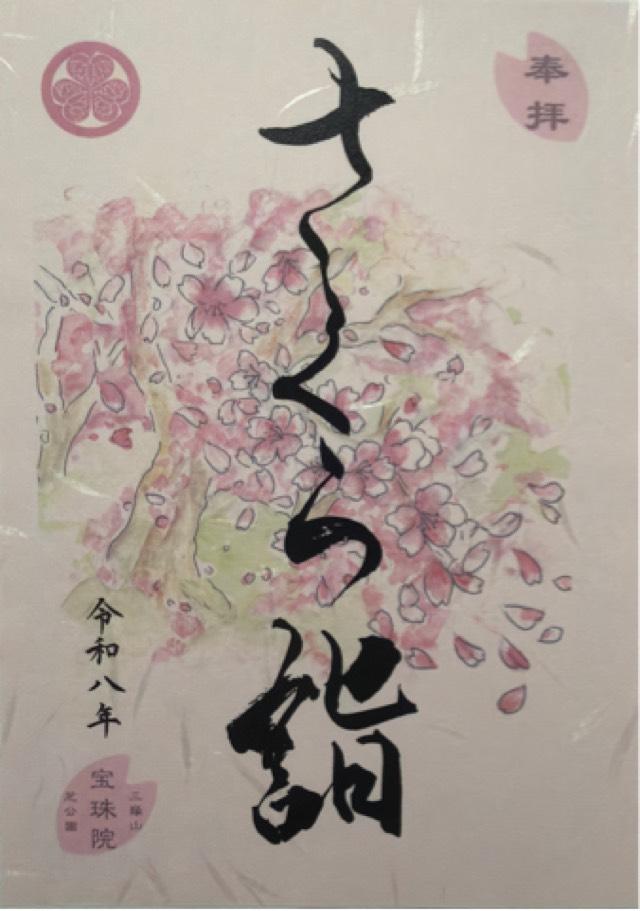 奉拝
さくら詣
令和八年
三縁山
宝珠院
芝公園